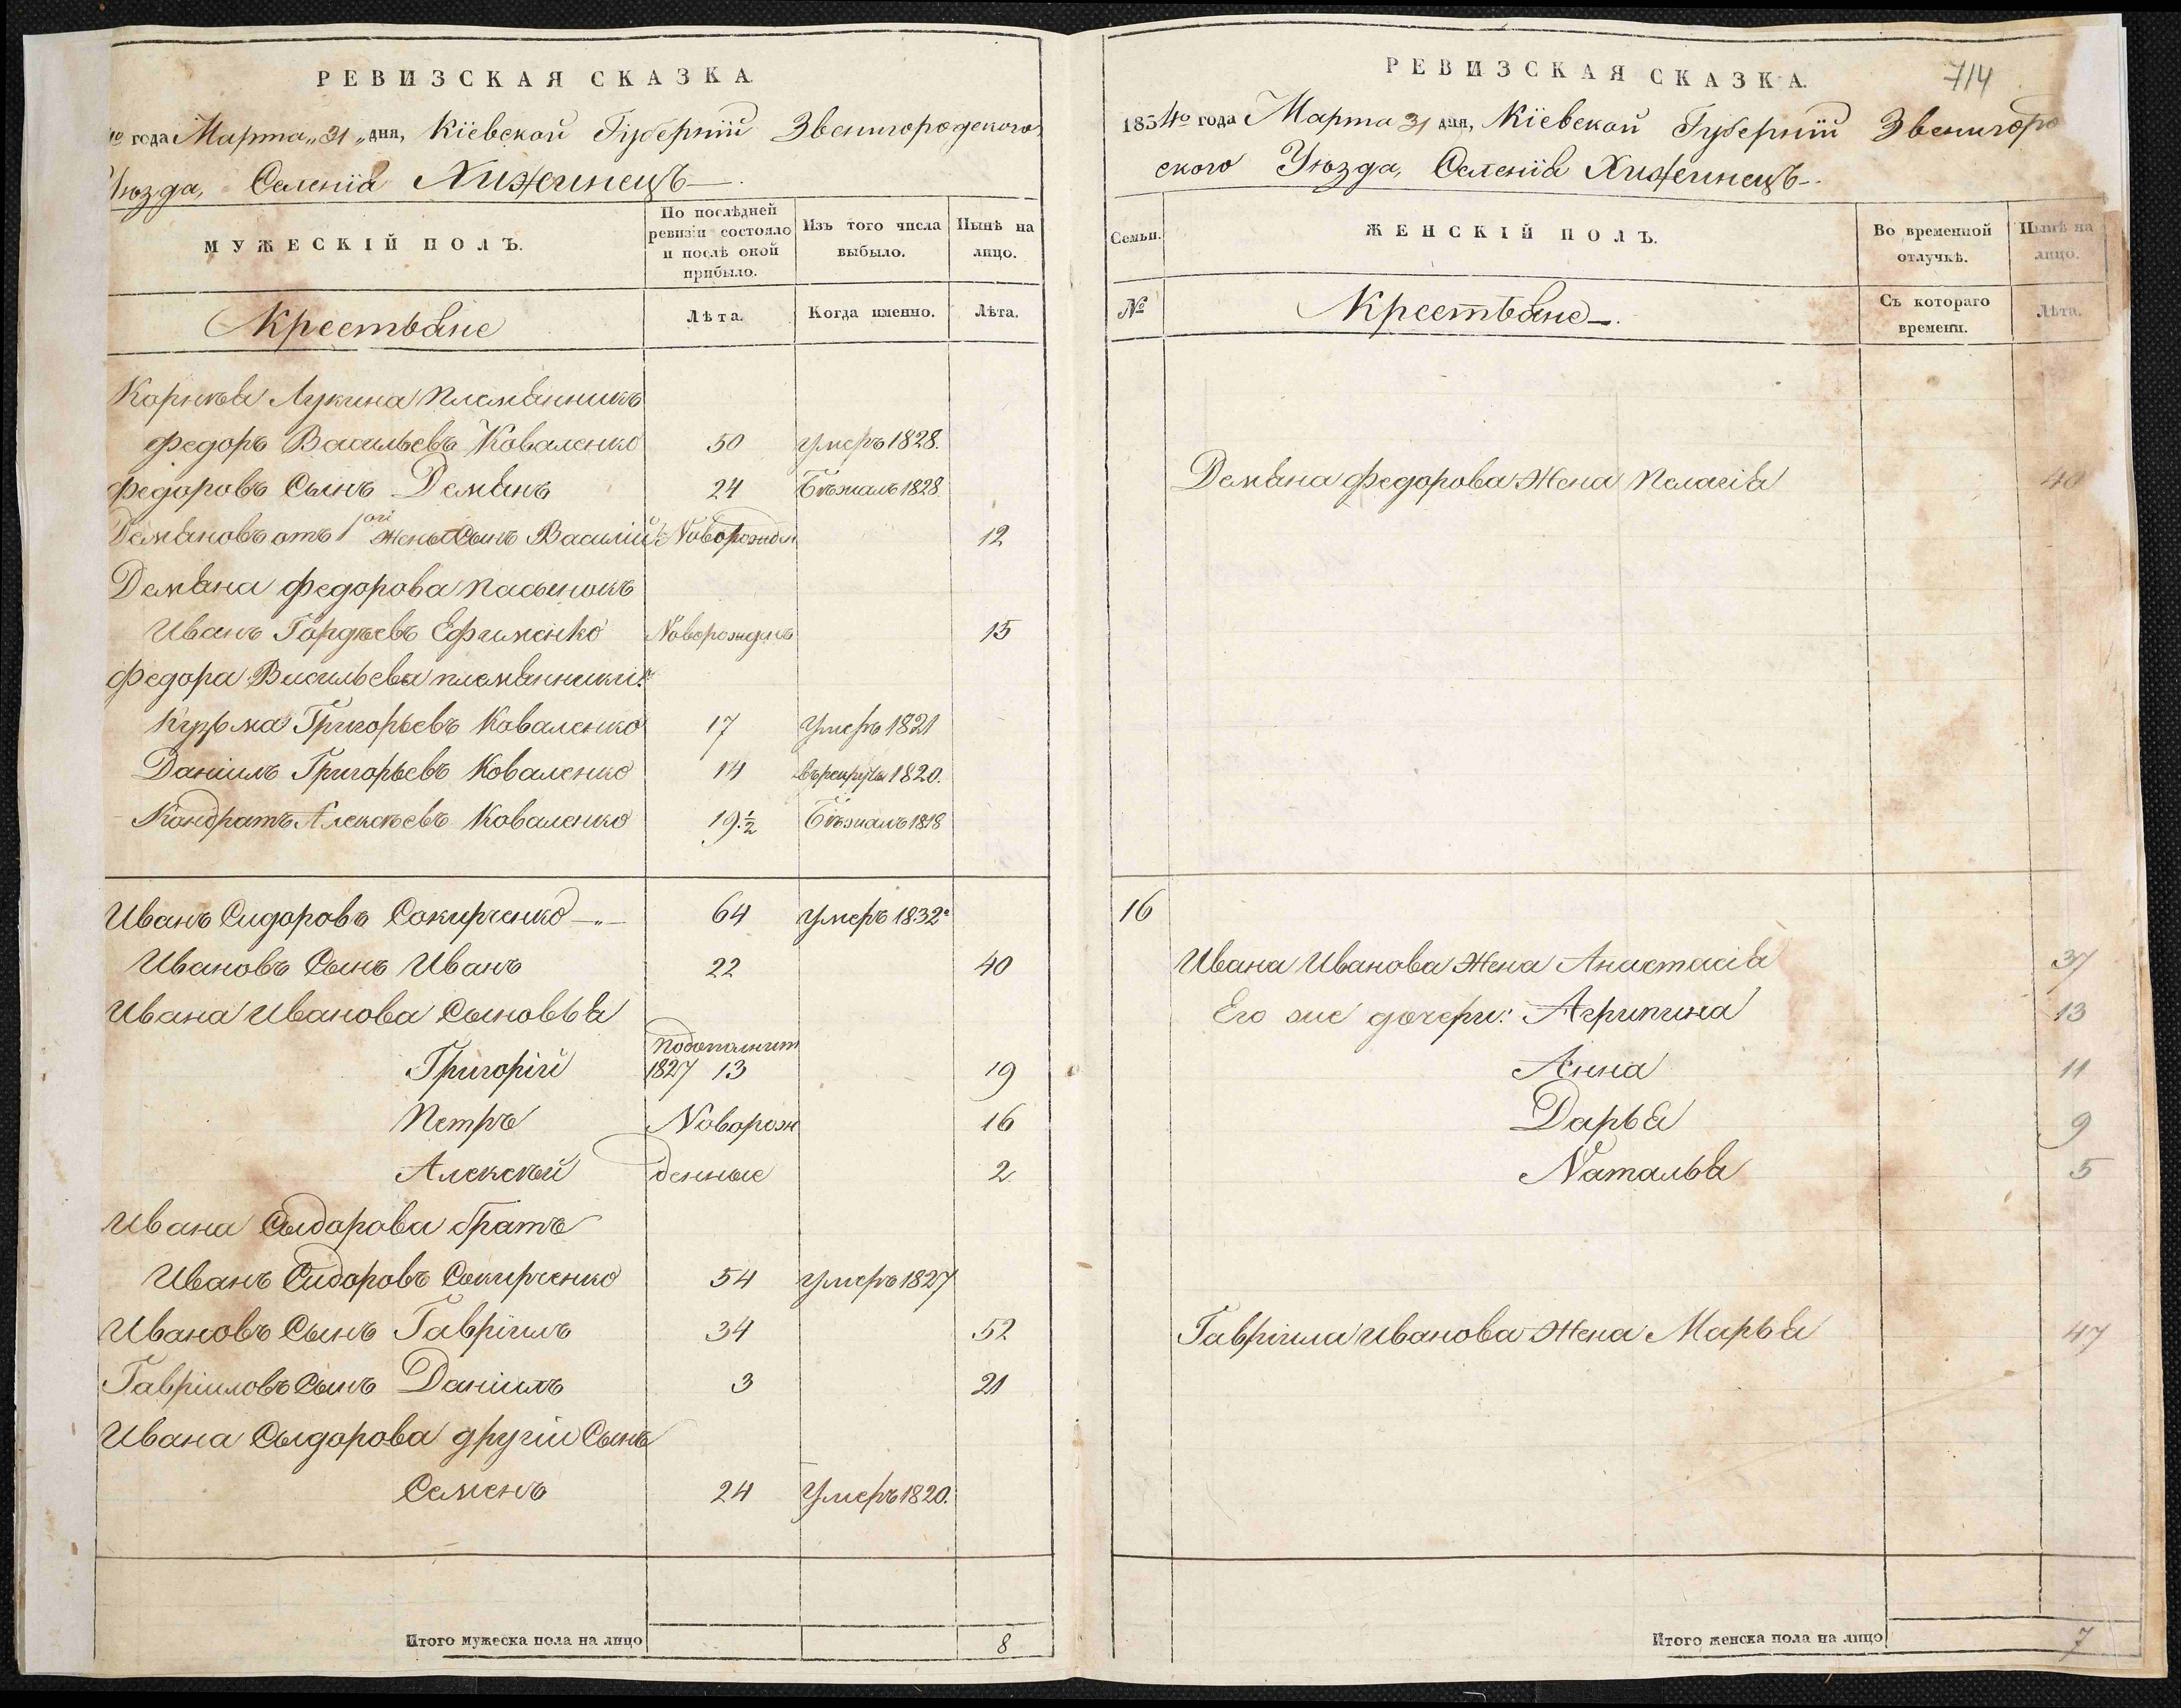 РЕВИЗСКАЯ СКАЗКА
года Марта „31„ дня, Кіевской Губерніи Звенигородскаго
Уѣзда, Селенія Хижинецъ
МУЖЕСКІЙ ПОЛЪ.
По послѣдней ревизіи состояло и послѣ оной прибыло.
Изъ того числа выбыло.
Нынѣ на лицо.
Крестьяне
Лѣта.
Когда именно.
Лѣта.
Корнѣя Лукина племянникъ
Федоръ Васильевъ Коваленко 50 умеръ 1828.
Федоровъ Сынъ Демянъ 24 Бѣжалъ 1828.
Демяновъ отъ 1ой жены Сынъ Василій Новорожден 12
Демяна Федорова пасынокъ
Иванъ Гордѣевъ Ефименко Новорожденъ 15
Федора Васильева племянники:
Кузьма Григорьевъ Коваленко 17 Умеръ 1821
Даніилъ Григорьевъ Коваленко 14 въ рекруты 1820.
Кондратъ Алексѣевъ Коваленко 19.½ Бѣжалъ 1818
Иванъ Сидоровъ Сокирченко 64 умеръ 1832
Ивановъ Сынъ Иванъ 22 40
Ивана Иванова Сыновья
Григорій 1827 13 19
Петръ Новорож 16
Алексѣй денные 2
Ивана Сыдорова братъ
Иванъ Сидоровъ Сокирченко 54 умеръ 1827
Ивановъ Сынъ Гавріилъ 34 52
Гавріиловъ Сынъ Даніилъ 3 21
Ивана Сыдорова другій Сынъ
Семенъ 24 Умеръ 1820.
Итого мужеска пола на лицо 8
РЕВИЗСКАЯ СКАЗКА.
714
1834го года Марта 31 дня, Кіевской Губерніи Звенигоро
ского Уѣзда, Селенія Хижинецъ
Семьи.
ЖЕНСКІЙ ПОЛЪ.
Во временной отлучкѣ.
Нынѣ на лицо.
№
Крестьяне
Съ котораго времени.
Лѣта.
Демяна Федорова Жена Пелагія 40
16
Ивана Иванова Жена Анастасія 37
Его же дочери: Агрипина 13
Анна 11
Дарья 9
Наталья 5
Гавріила Иванова Жена Марья 47
Итого женска пола на лицо 7